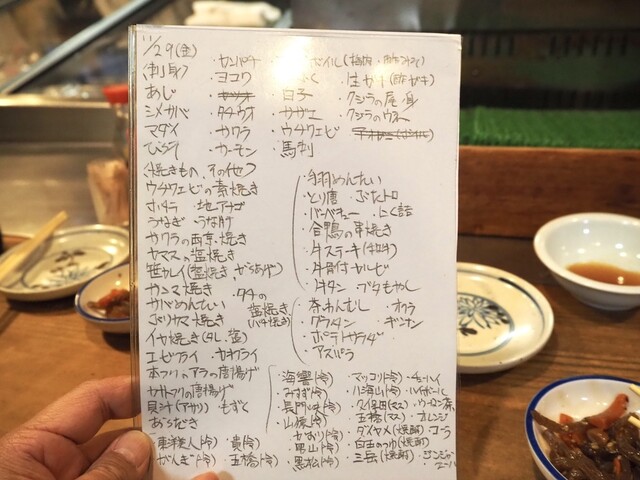 11/29(金)
(刺身)
あじ
シメサバ
マダイ
ひらめ
・カンパチ
・ヨコワ
・タチウオ
・サワラ
・サーモン
・白子
・サザエ
・ウチワエビ
・馬刺
・生ガキ(酢ガキ)
・クジラの尾身
・クジラのウネ
(焼きもの、その他)
ウチワエビの素焼き
・地アナゴ
うなぎ うな肝
サワラの西京焼き
ヤマメの塩焼き
笹カレイ(塩焼き、からあげ)
サンマ焼き
サバめんたい
イカ焼き(タレ、塩)
エビフライ カキフライ
本フグのアラの唐揚げ
貝汁(アサリ) もずく
・タチの塩焼き
(バタ焼き)
・手羽めんたい
・とり唐 ぶたトロ
・バーベキュー ・にく詰
・合鴨の串焼き
・牛ステーキ
・牛骨付カルビ
・牛タン ブタもやし
・茶わんむし ・オクラ
・グラタン ・ギンナン
・ポテトサラダ
・アスパラ
・東洋美人(冷) ・貴(冷)
がんぎ(冷) ・五橋(冷)
・海響(冷)
・みずゞ(冷)
・長門峡(冷)
・山猿(冷)
・かほり(冷)
・男山(冷)
・黒松(冷)
・マッコリ(冷)
・八海山(冷)
・久保田(マス)
・五橋(マス)
・ダイヤメ(焼酎)
・白玉のつゆ(焼酎)
・三岳(焼酎)
・チューハイ
・ハイボール
・ウーロン茶
・オレンジ
・コーラ
・ジンジャエール